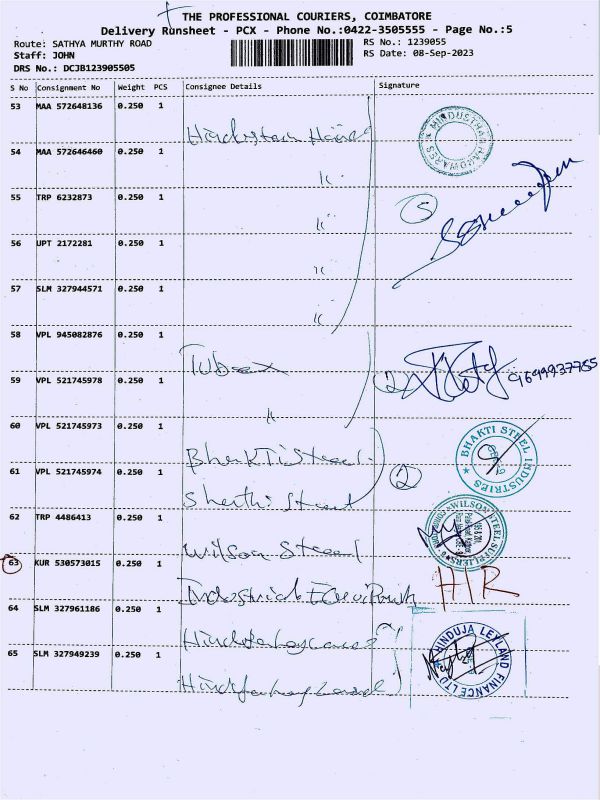 THE PROFESSIONAL COURIERS, COIMBATORE
Delivery Runsheet - PCX - Phone No.:0422-3505555 - Page No.:5
Route: SATHYA MURTHY ROAD
RS No.: 1239055
Staff: JOHN
RS Date: 08-Sep-2023
DRS No.: DCJB123905505
S No Consignment No Weight PCS Consignee Details Signature
53 MAA 572648136 0.250 1 Hindustan
HINDUSTHAN HARDWARES
54 MAA 572646460 0.250 1 "
55 TRP 6232873 0.250 1 "
5
56 UPT 2172281 0.250 1 "
57 SLM 327944571 0.250 1 "
58 VPL 945082876 0.250 1 Tubex
59 VPL 521745978 0.250 1 "
2
60 VPL 521745973 0.250 1 Bhakti Steel
BHAKTI STEEL INDUSTRIES
61 VPL 521745974 0.250 1
2
62 TRP 4486413 0.250 1 Wilson Steel
WILSON STEEL SUPPLIERS
63 KUR 530573015 0.250 1
HIR
64 SLM 327961186 0.250 1
65 SLM 327949239 0.250 1
HINDUJA LEYLAND FINANCE LTD